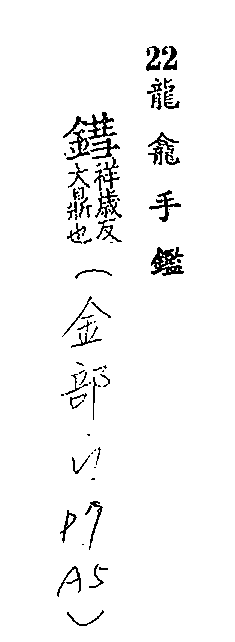 22龍龕手鑑
鏏祥歳反大鼎也(金部
P7
A5)